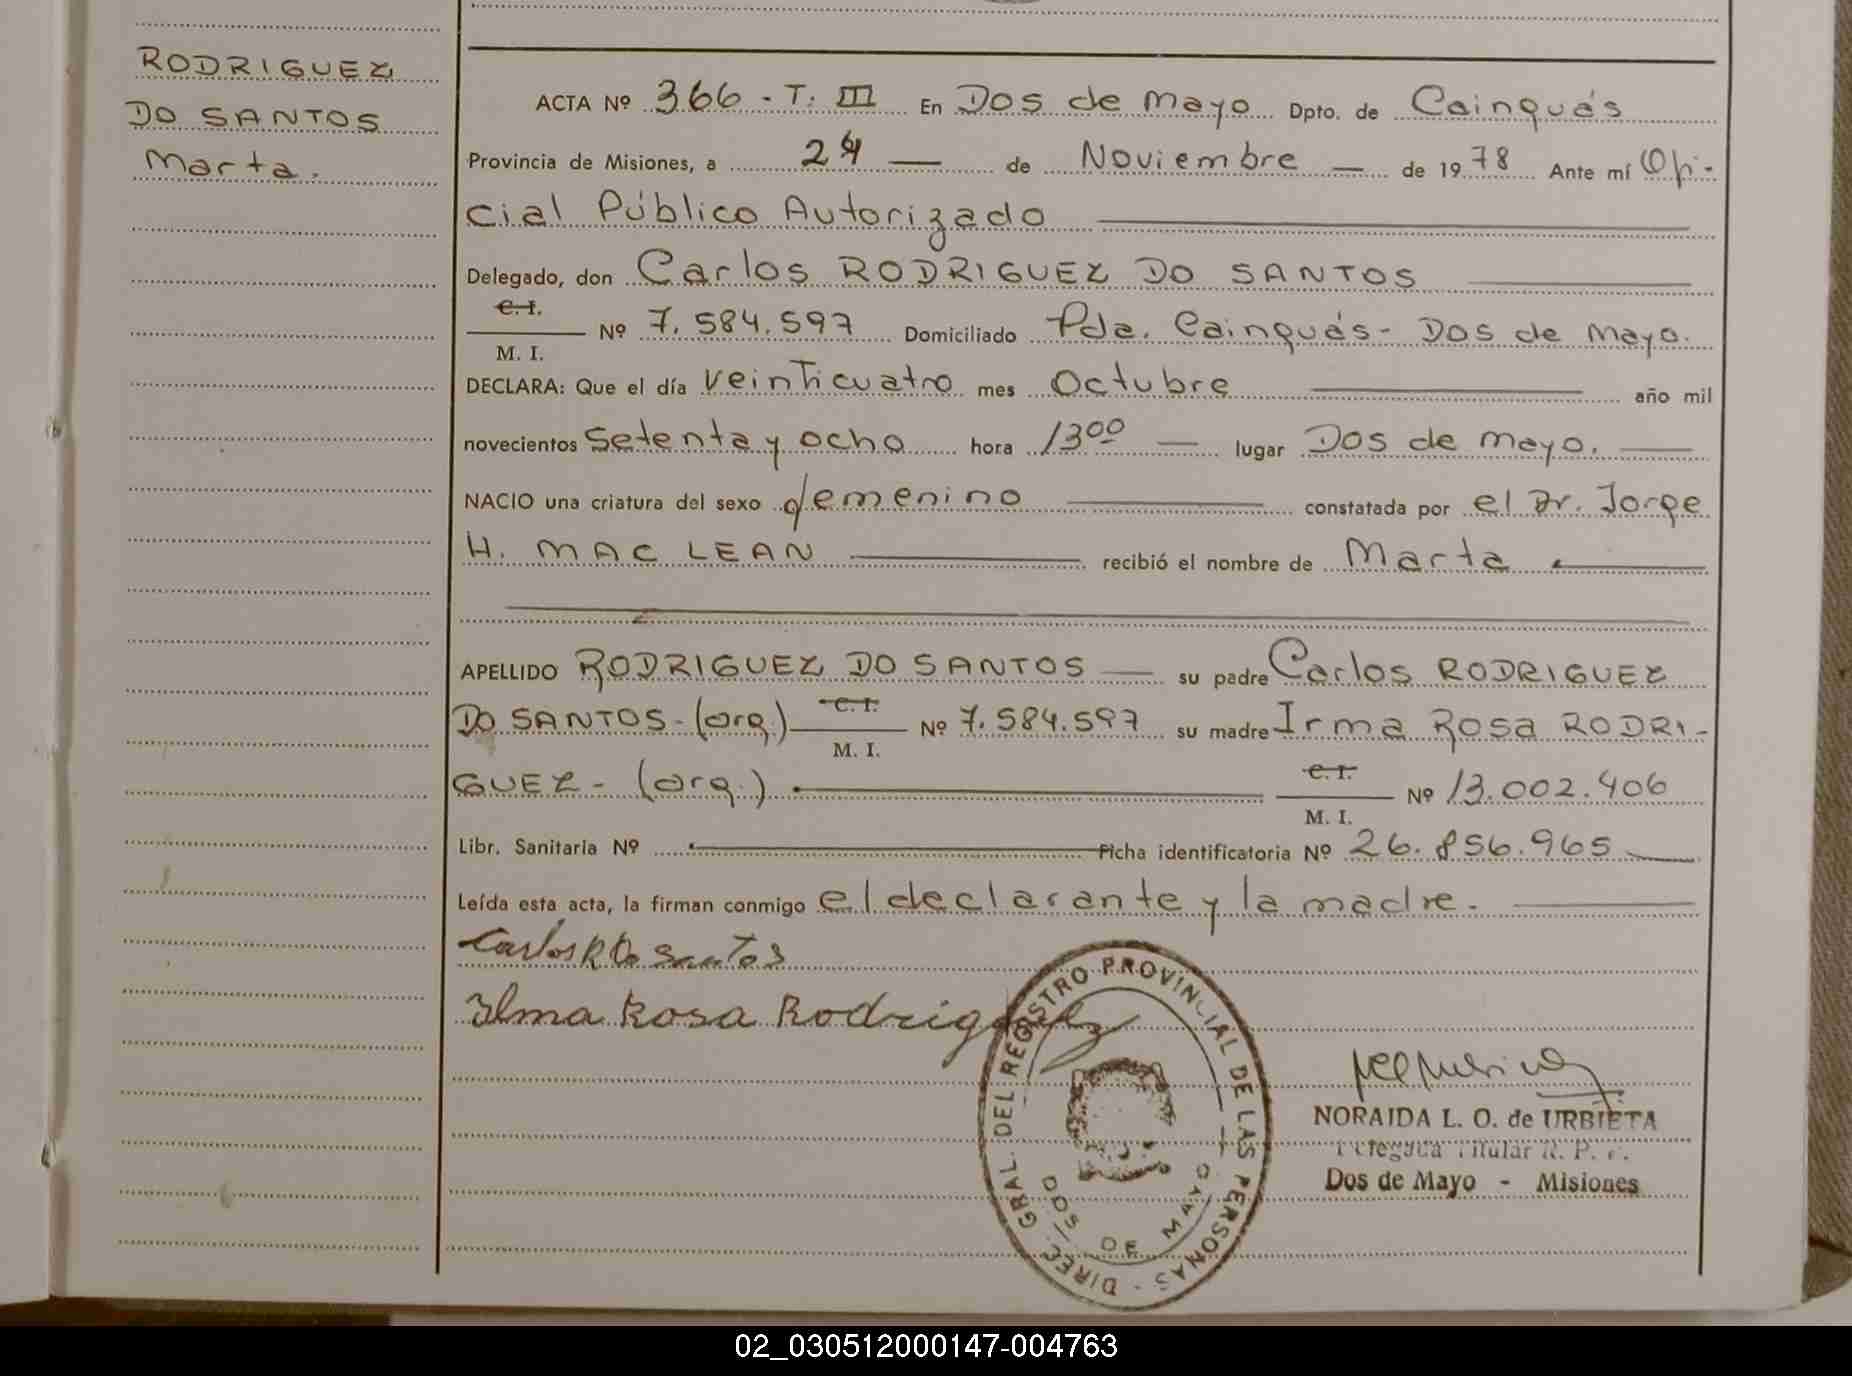 RODRIGUEZ
DO SANTOS
Marta.
ACTA Nº 366 - T. III En Dos de Mayo Dpto. de Cainguás
Provincia de Misiones, a 24 — de Noviembre — de 1978 Ante mí Ofi-
cial Público Autorizado
Delegado, don Carlos RODRIGUEZ DO SANTOS
C.I.
Nº 7.584.597 Domiciliado Pda. Cainguás - Dos de Mayo.
M. I.
DECLARA: Que el día veinticuatro mes Octubre — año mil
novecientos setenta y ocho hora 13⁰⁰ — lugar Dos de Mayo. —
NACIO una criatura del sexo femenino — constatada por el Dr. Jorge
H. MAC LEAN — recibió el nombre de Marta —
APELLIDO RODRIGUEZ DO SANTOS — su padre Carlos RODRIGUEZ
DO SANTOS - (arg.) C.I. Nº 7.584.597 su madre Irma Rosa RODRI-
M. I.
GUEZ - (arg.) — C.I. Nº 13.002.406
M. I.
Libr. Sanitaria Nº — Ficha identificatoria Nº 26.856.965 —
Leída esta acta, la firman conmigo el declarante y la madre. —
Carlos R Do Santos
Irma Rosa Rodriguez
DIREC. GRAL. DEL REGISTRO PROVINCIAL DE LAS PERSONAS -
DOS DE MAYO
NORAIDA L. O. de URBIETA
Delegada Titular R. P. P.
Dos de Mayo - Misiones
02_030512000147-004763